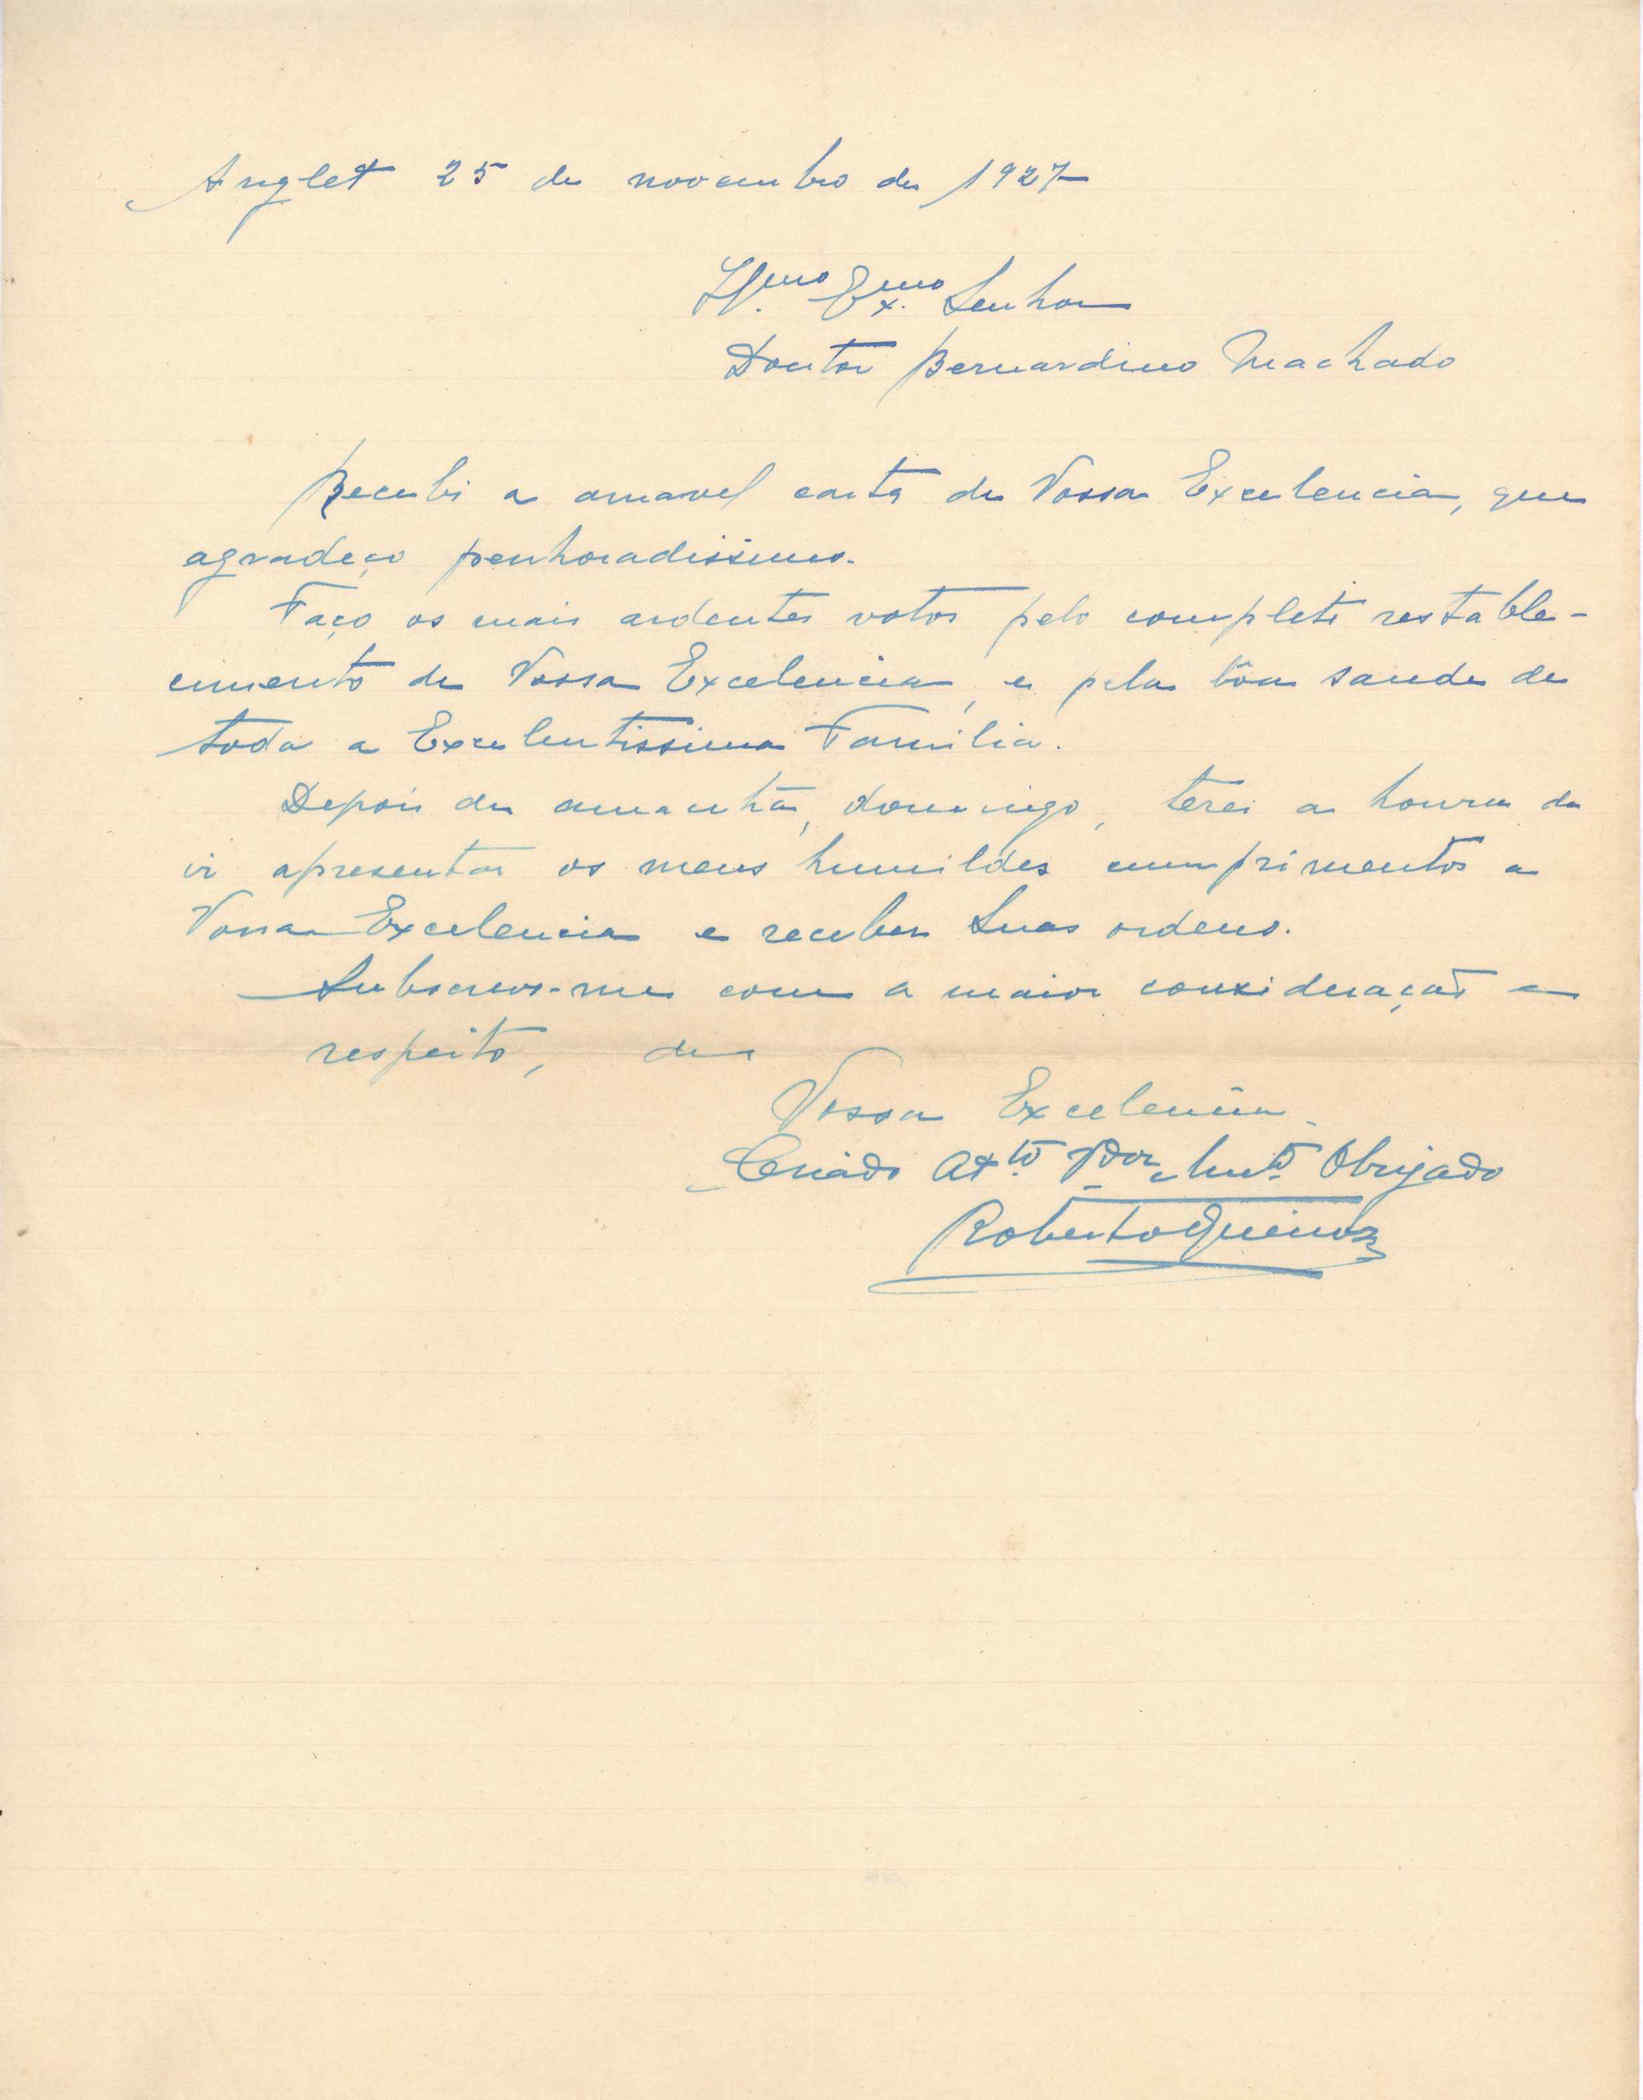 Anglet 25 de novembro de 1927
Il.mo Ex.mo Senhor
Doutor Bernardino Machado
Recebi a amavel carta de Vossa Excelencia, que
agradeço penhoradissimo.
Faço os mais ardentes votos pelo completo restable-
cimento de Vossa Excelencia, e pela bôa saude de
toda a Excelentissima Familia.
Depois de amanhã, domingo, terei a honra de
ir apresentar os meus humildes cumprimentos a
Vossa Excelencia e receber Suas ordens.
Subscrevo-me com a maior consideração e
respeito, de
Vossa Excelencia
Criado At.to V.dor e Mu.to Obrigado
Roberto Queiroz